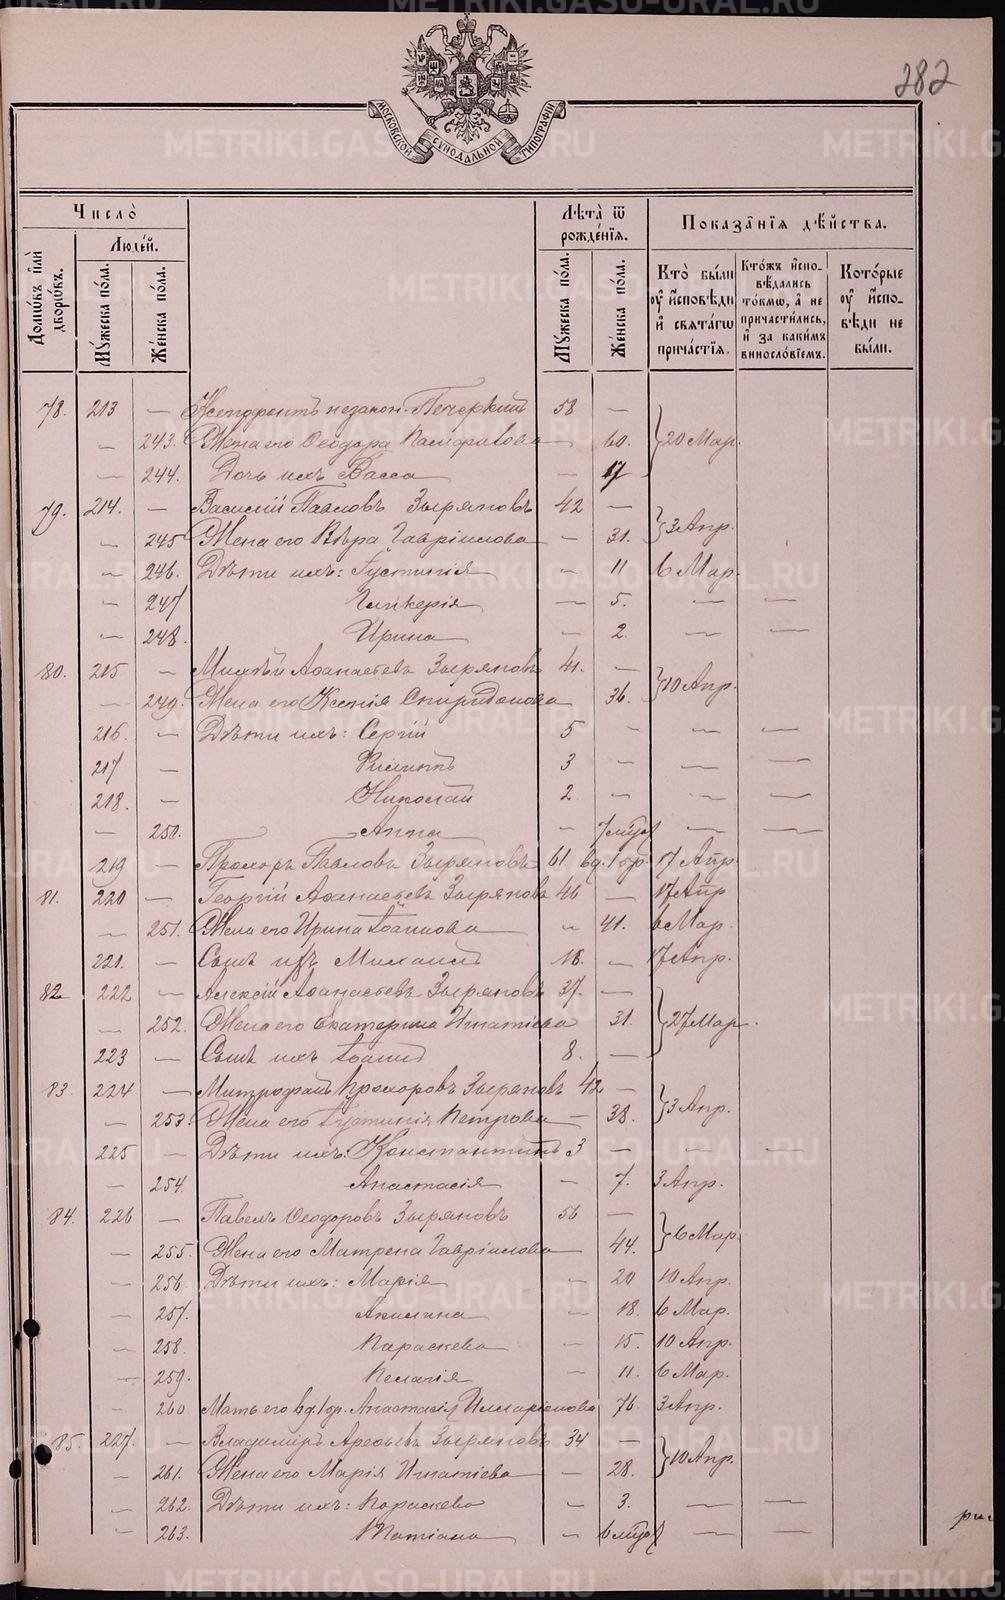 282
МОСКОВСКОЙ СѴНОДАЛЬНОЙ ТИПОГРАФІИ
Число
Людей.
Домѡвъ или дворѡвъ.
Мужеска пола.
Женска пола.
Лѣта ѿ рожденїѧ.
Мужеска пола.
Женска пола.
Показанїѧ дѣйства.
Кто были оу исповѣди и свѧтагѡ причастїѧ.
Ктожъ исповѣдались токмѡ, а не причастились, и за какимъ винословїемъ.
Которые оу исповѣди не были.
78. 213 — незакон. Печеркинъ 58 —
— 243. Жена его Ѳеодора Памфилова — 60. } 20 Мар.
— 244. Дочь ихъ Васса — 17
79. 214. — Василій Павловъ Зыряновъ 42 —
— 245 Жена его Вѣра Гавріилова — 31. } 3 Апр.
— 246. Дѣти ихъ: Іустинія — 11 6 Мар.
— 247 Гликерія — 5. — —
— 248. Ирина — 2. — —
80. 215 — Михѣй Аѳанасьевъ Зыряновъ 41. —
— 249. Жена его Ксенія Спиридонова 36. } 10 Апр.
216. — Дѣти ихъ: Сергій 5 — — —
217 — Филиппъ 3 — — —
218. — Николай 2 — — —
— 250. Анна — 7 мѣс — —
219 — Прохоръ Павловъ Зыряновъ 61 вд. 1 бр. 17 Апр.
81. 220 — Георгій Аѳанасьевъ Зыряновъ 46 — 17 Апр
— 251. Жена его Ирина Іоаннова — 41. 6 Мар.
221. — Сынъ ихъ Михаилъ 16. — 17 Апр.
82 222 — Алексій Аѳанасьевъ Зыряновъ 37. —
— 252. Жена его Екатерина Игнатіева 31. } 27 Мар.
223 — Сынъ ихъ Іоаннъ 8. —
83. 224 — Митрофанъ Прохоровъ Зыряновъ 42 —
— 253 Жена его Іустинія Петрова — 38. } 3 Апр.
225 — Дѣти ихъ: Константинъ 3 — — —
— 254. Анастасія — 7. 3 Апр.
84. 226 — Павелъ Ѳеодоровъ Зыряновъ 56 —
— 255. Жена его Матрена Гавріилова 44. } 6 Мар.
— 256 Дѣти ихъ: Марія — 20 10 Апр.
— 257. Акилина — 18. 6 Мар.
— 258. Параскева — 15. 10 Апр.
— 259. Пелагія — 11. 6 Мар.
— 260 Мать его вд. 1 бр. Анастасія Илларіонова 76. 3 Апр.
85. 227. — Владиміръ Арефьевъ Зыряновъ 34 —
— 261. Жена его Марія Игнатіева — 28. } 10 Апр.
— 262. Дѣти ихъ: Параскева — 3. — —
— 263. Татіана — 6 мѣс — —
METRIKI.GASO-URAL.RU